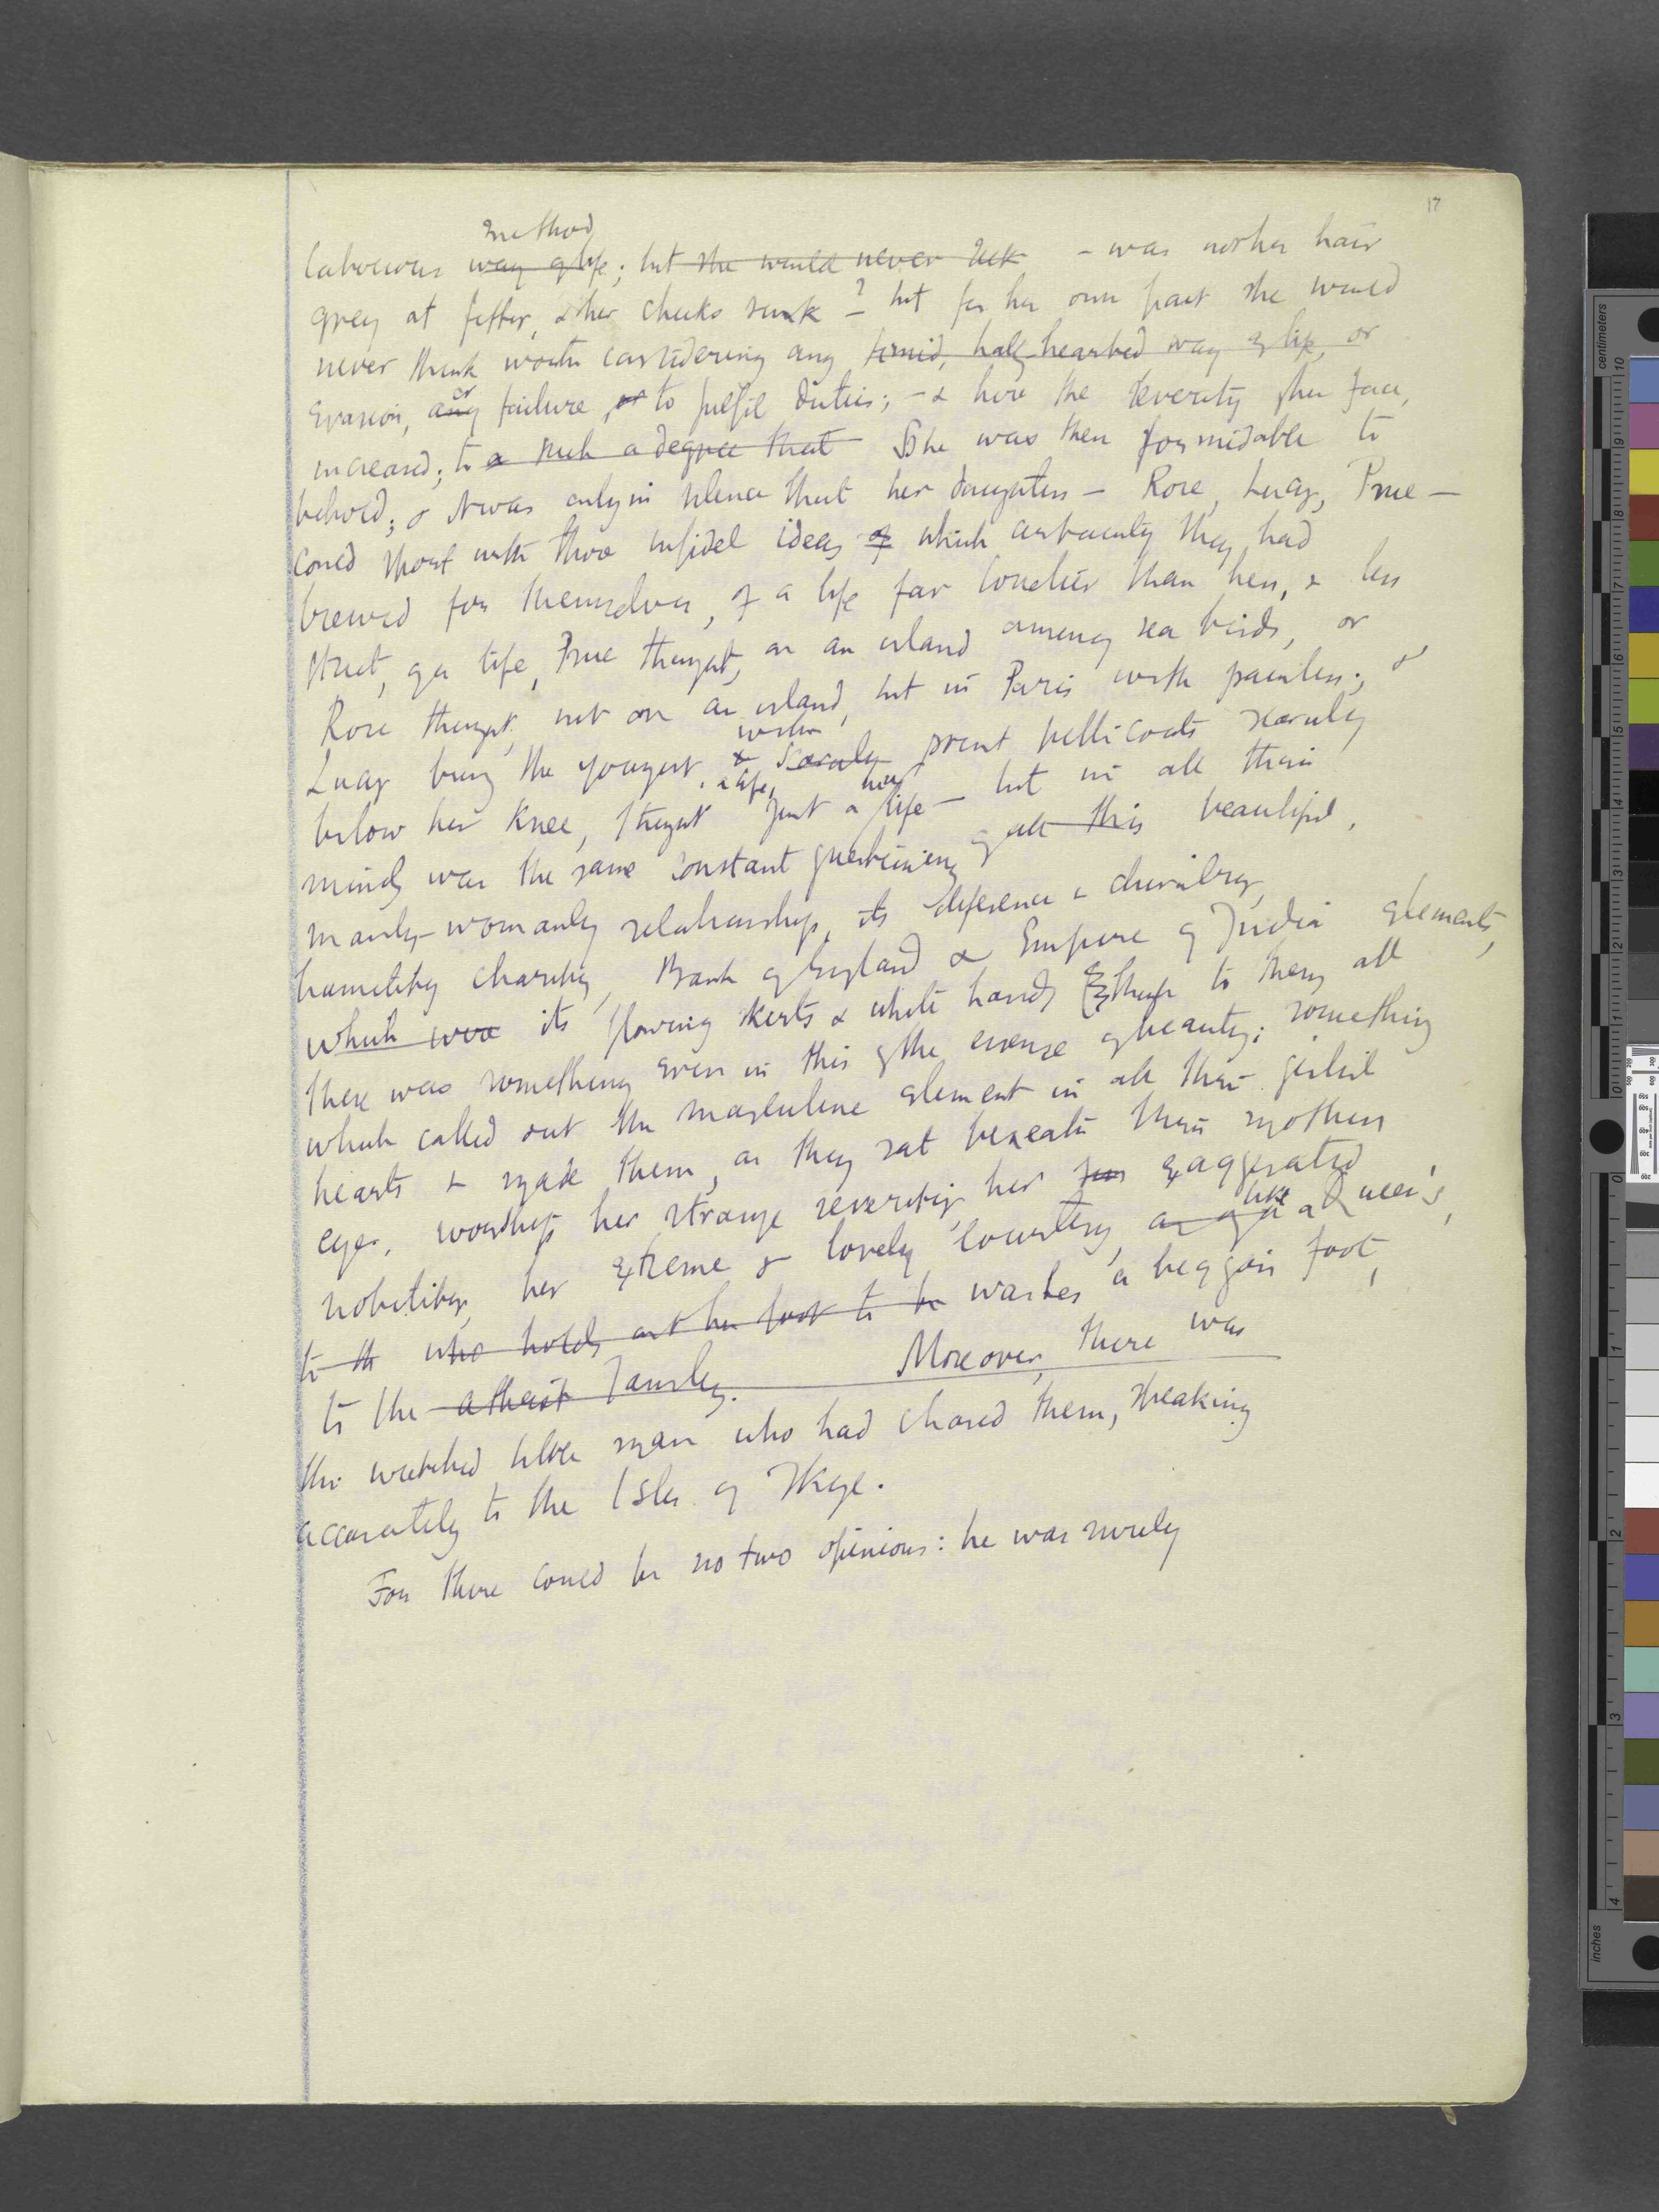 17
method
laborious way of life; but she would never seek - was not her hair
grey at fifty, & her cheeks sunk? - but for her own part she would
never think worth considering any timid, half-hearted way of life, or
evasion, any or failure, or to fulfil duties; - & here the severity of her face,
increased; to a such a degree that She was then formidable to
behold; & it was only in silence that her daughters - Rose, Lucy, Prue -
could sport with those infidel ideas of which certainly they had
brewed for themselves, of a life far lonelier than hers, & less
strict, of a life, Prue thought, on an island among sea birds, or
Rose thought, not on an island, but in Paris with painters; &
Lucy being the youngest, & scarcely with short petticoats scarcely
below her knee, thought a life, just a life - but in all their
minds was the same constant questioning of all this beautiful,
manly-womanly relationship, its deference & chivalry,
humility charity, Bank of England & Empire of India elements,
which wore its flowing skirts & white hands though to them all
there was something even in this of the essence of beauty; something
which called out the masculine element in all their girlish
hearts & made them, as they sat beneath their mothers
eyes, worship her strange severity, her exaggerated
nobility, her extreme & lovely courtesy, as of a like a Queen's,
to th who holds out her foot to be washes a beggars foot,
to the atheist Tansley. Moreover, there was
the wretched little man who had chased them, speaking
accurately to the Isle of Skye.
For there could be no two opinions: he was surely
centimeters
inches